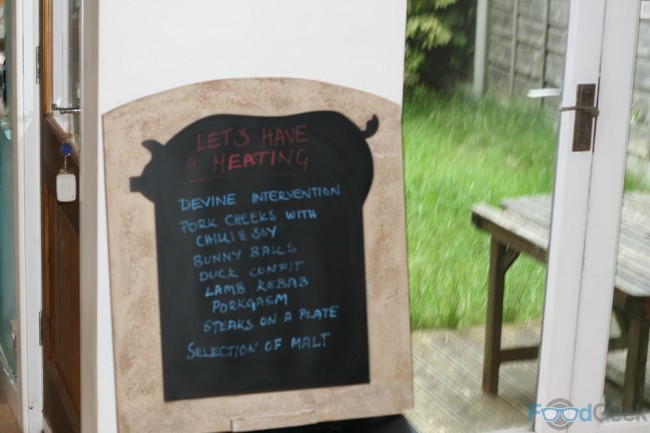 LET'S HAVE
A MEATING
DEVINE INTERVENTION
PORK CHEEKS WITH
CHILLI & SOY
BUNNY BALLS
DUCK CONFIT
LAMB KEBAB
PORKGASM
STEAKS ON A PLATE
SELECTION OF MALT
FoodGeek